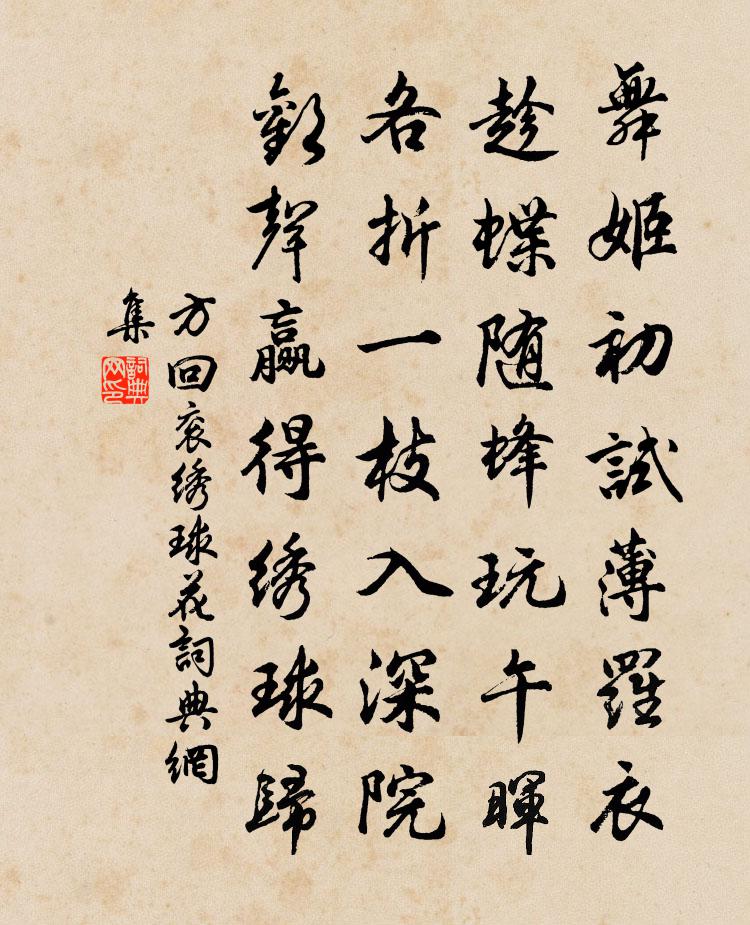 舞姬初試薄羅衣
趁蝶随蜂玩午暉
各折一枝入深院
歡聲贏得绣球歸
方回衮绣球花詞典網
集
詞典
网印